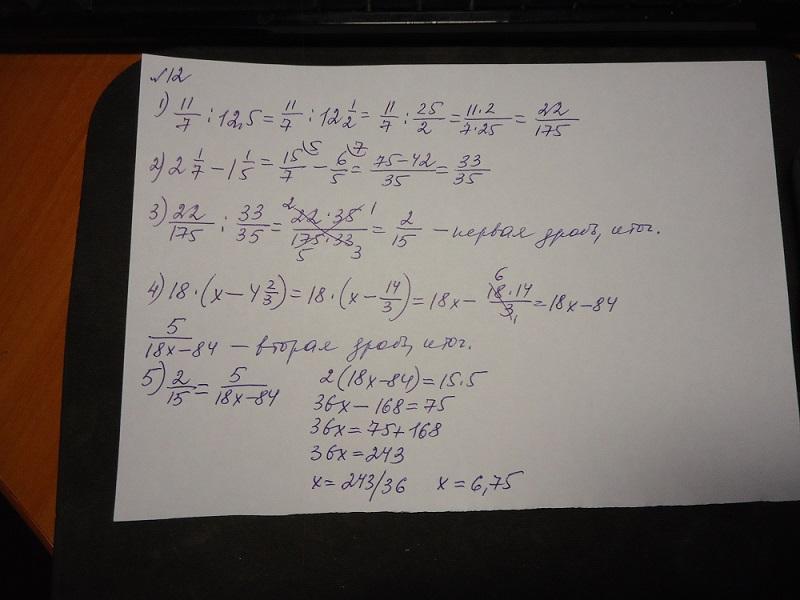 №12
1) 11/7 : 12,5 = 11/7 : 12 1/2 = 11/7 : 25/2 = 11·2/7·25 = 22/175
2) 2 1/7 − 1 1/5 = 15/7 \5 − 6/5 \7 = 75−42/35 = 33/35
3) 22/175 : 33/35 = 2 22·35 1/5 175·33 3 = 2/15 – первая дробь, итог.
4) 18·(x − 4 2/3) = 18·(x − 14/3) = 18x − 6 18·14/3 1 = 18x−84
5/18x−84 – вторая дробь, итог.
5) 2/15 = 5/18x−84 2(18x−84)=15·5
36x−168=75
36x=75+168
36x=243
x=243/36 x=6,75